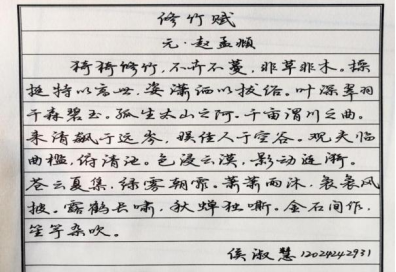 修竹赋
元·赵孟頫
猗猗修竹，不卉不蔓，非草非木。操
挺特以高世，姿潇洒以拔俗。叶深翠羽
干森碧玉。孤生太山之阿，千亩渭川之曲。
来清飙于远岑，娱佳人于空谷。观夫临
曲槛，俯清池。色浸云汉，影动涟漪。
苍云夏集，绿雾朝霏。萧萧雨沐，袅袅风
披。露鹤长啸，秋蝉独嘶。金石间作，
笙竽杂吹。
侯淑慧 12024242931